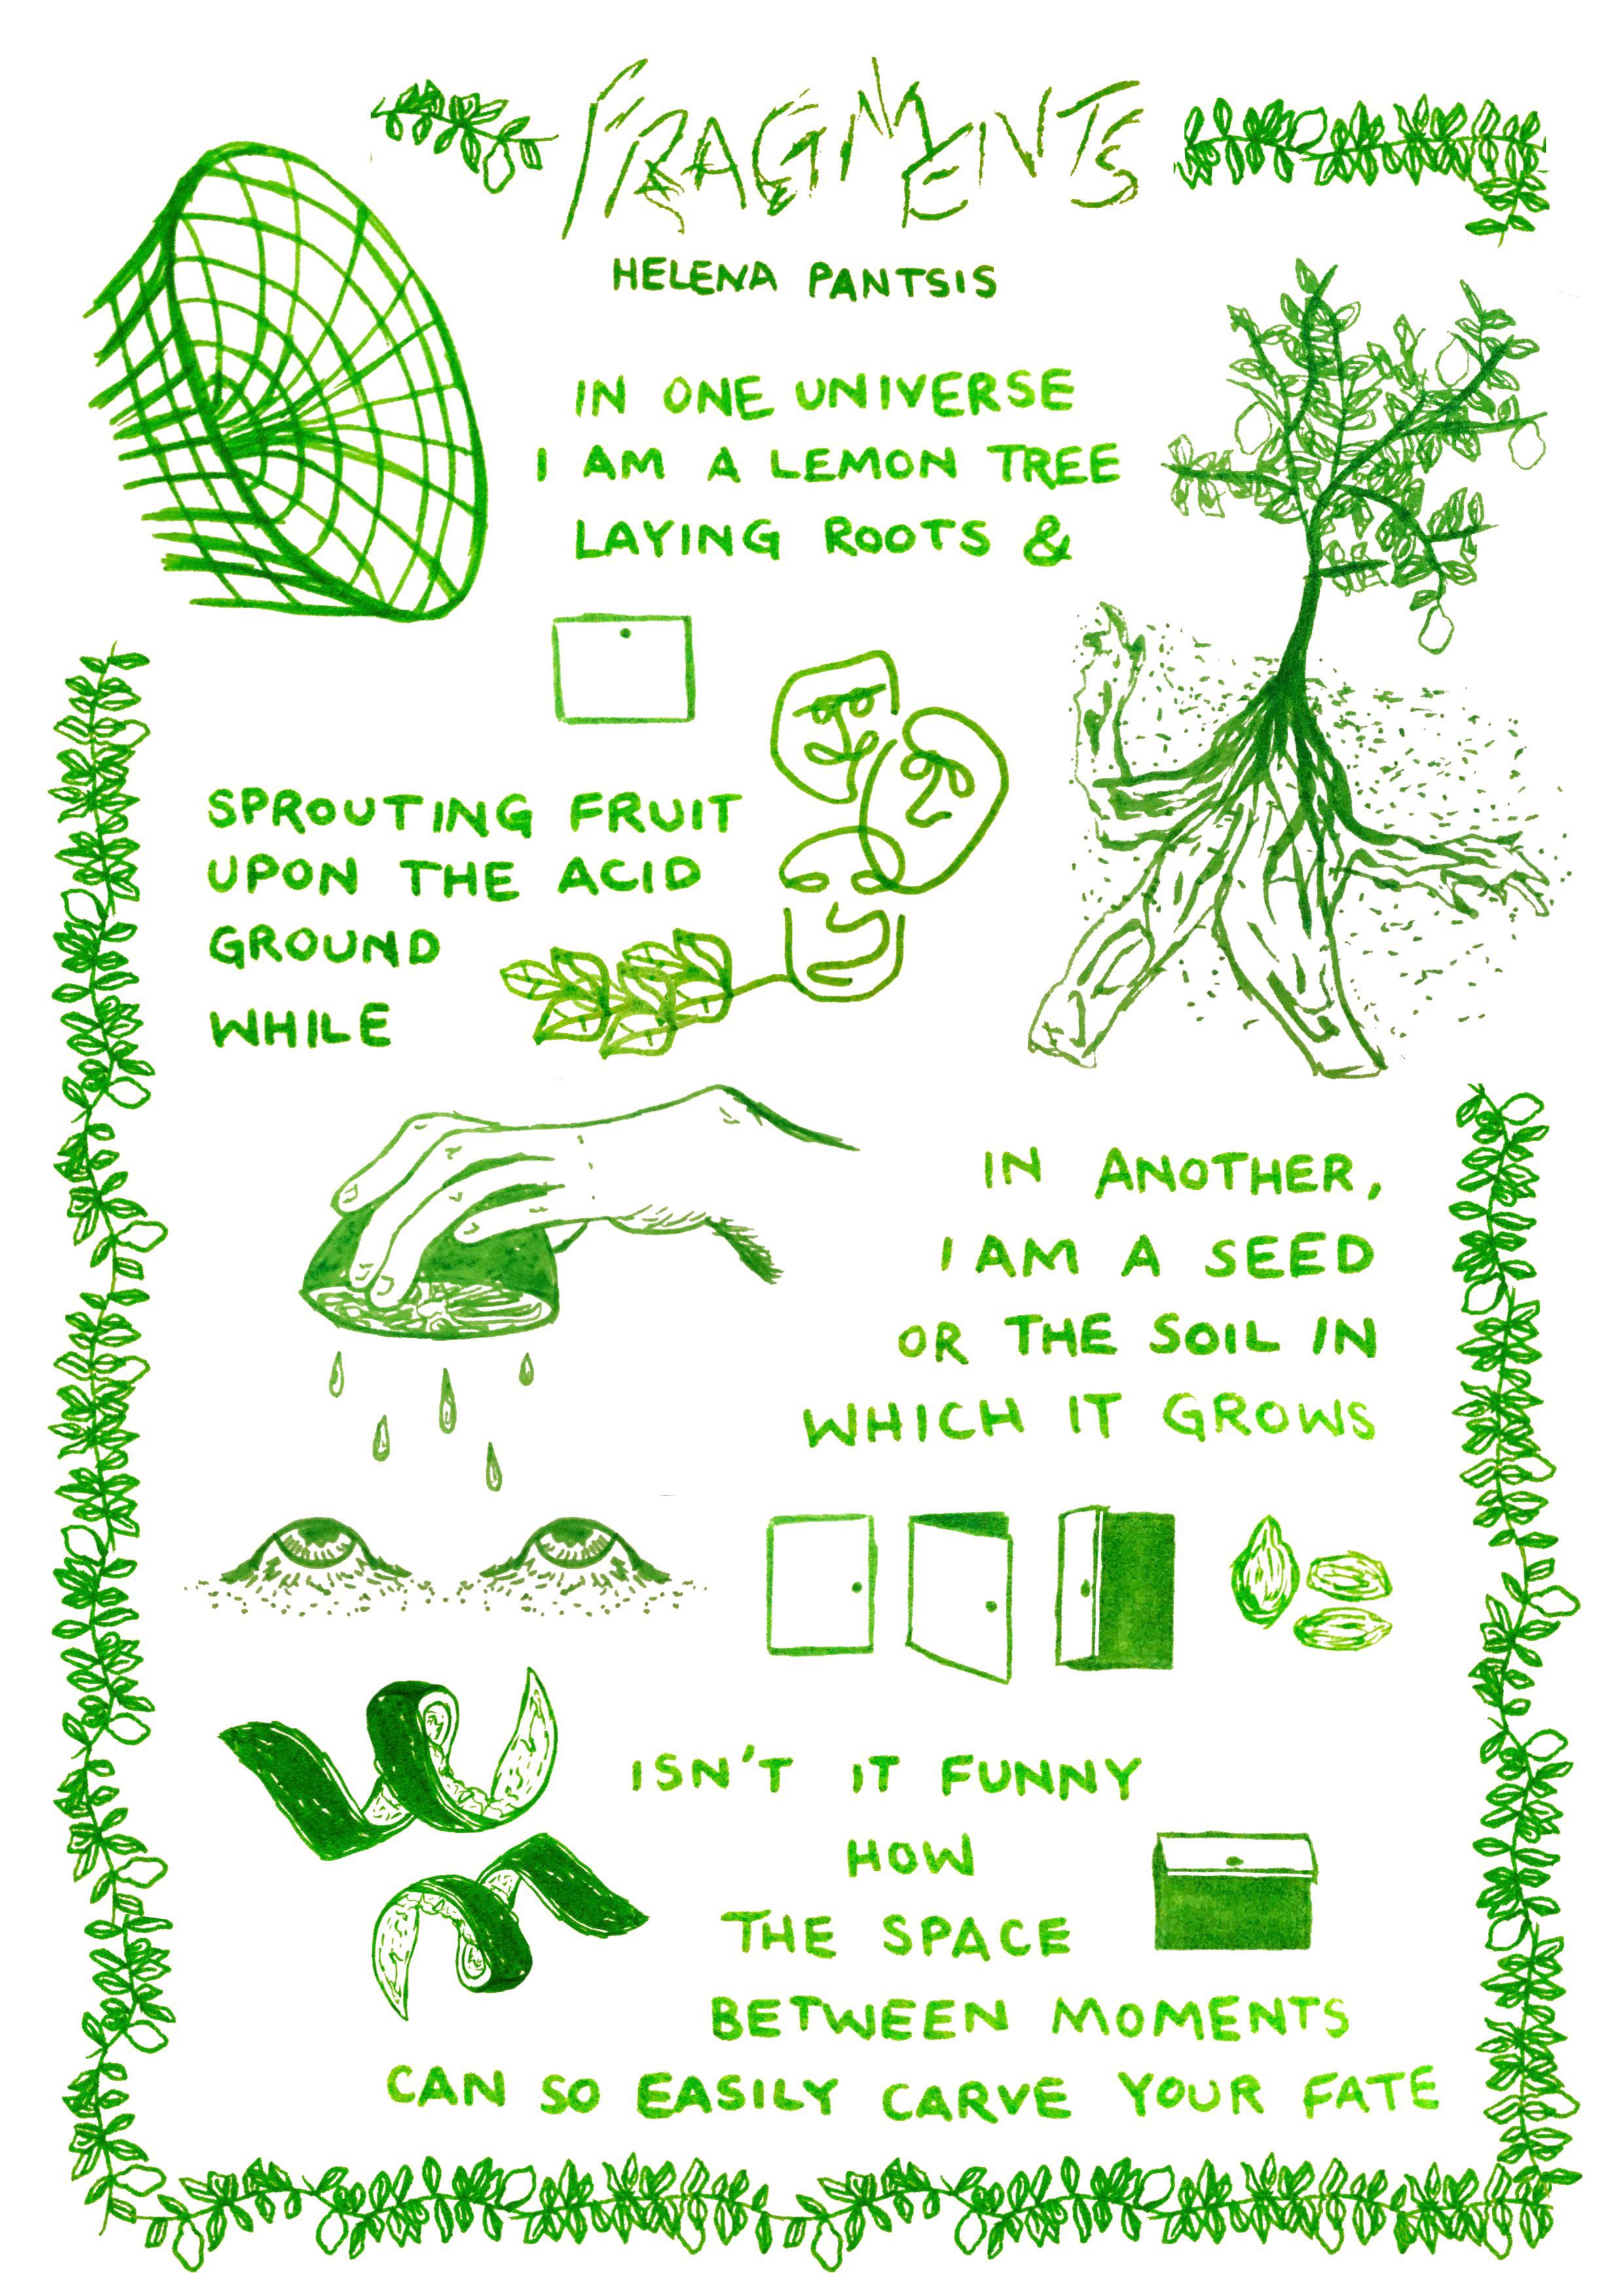 FRAGMENTS
HELENA PANTSIS
IN ONE UNIVERSE
I AM A LEMON TREE
LAYING ROOTS &
SPROUTING FRUIT
UPON THE ACID
GROUND
WHILE
IN ANOTHER,
I AM A SEED
OR THE SOIL IN
WHICH IT GROWS
ISN'T IT FUNNY
HOW
THE SPACE
BETWEEN MOMENTS
CAN SO EASILY CARVE YOUR FATE